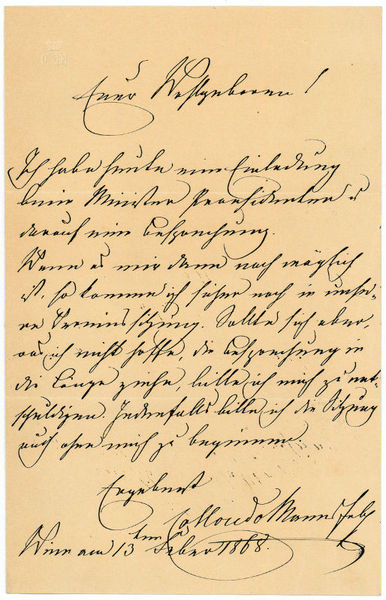 Euer Wohlgeboren!
Ich habe heute eine Einladung
beim Minister Praesidenten u
darauf eine Besprechung.
Wenn es mir dann noch möglich
ist, so komme ich sicher noch in unse-
re Vereinssitzung. Sollte sich aber,
was ich nicht hoffe, die Besprechung in
die Länge ziehn, bitte ich mich zu ent-
schuldigen. Jedenfalls bitte ich die Sitzung
auch ohne mich zu beginnen.
Ergebenst
Colloredo Mannsfeld
Wien am 13ten Feber 1868.